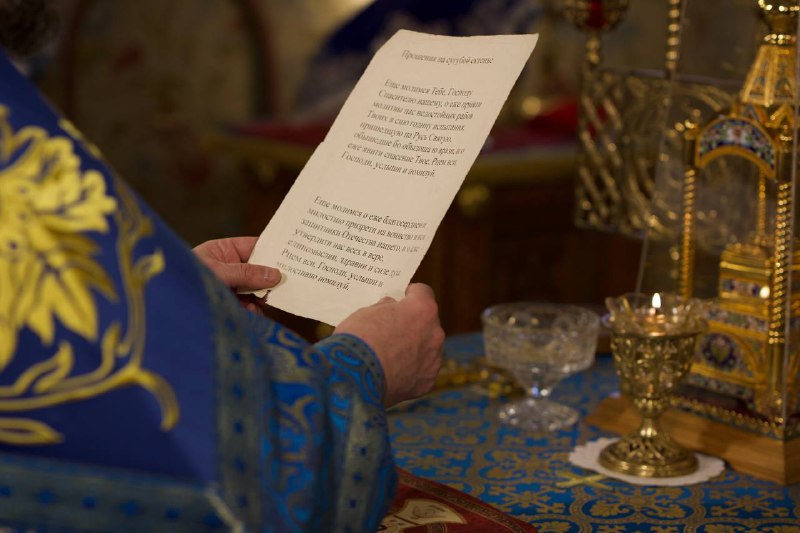 Прошения на сугубой ектенье
Еще молимся Тебе, Господу
Спасителю нашему, о еже прияти
молитвы нас недостойных рабов
Твоих в сию годину испытания,
пришедшую на Русь Святую,
обышедше бо обыдоша ю врази, и о
еже явити спасение Твое, Рцем вси,
Господи, услыши и помилуй.
Еще молимся о еже благосердием и
милостию призрети на воинство и вся
защитники Отечества нашего, и о еже
утвердити нас всех в вере,
единомыслии, здравии и силе духа,
Рцем вси, Господи, услыши и
милостивно помилуй.